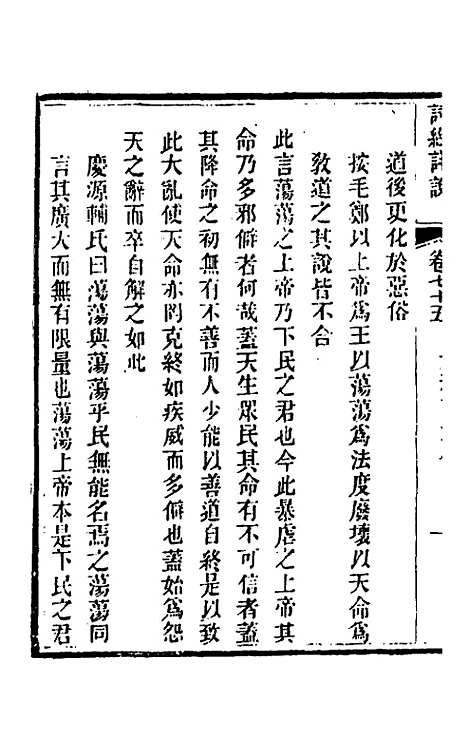 詩經詳說
卷七十五
道後更化於惡俗
按毛鄭以上帝爲王以蕩蕩爲法度廢壞以天命爲
敎道之其說皆不合
此言蕩蕩之上帝乃下民之君也今此暴虐之上帝其
命乃多邪僻者何哉蓋天生眾民其命有不可信者蓋
其降命之初無有不善而人少能以善道自終是以致
此大亂使天命亦罔克終如疾威而多僻也蓋始爲怨
天之辭而卒自解之如此
慶源輔氏曰蕩蕩與蕩蕩乎民無能名焉之蕩蕩同
言其廣大而無有限量也蕩蕩上帝本是下民之君